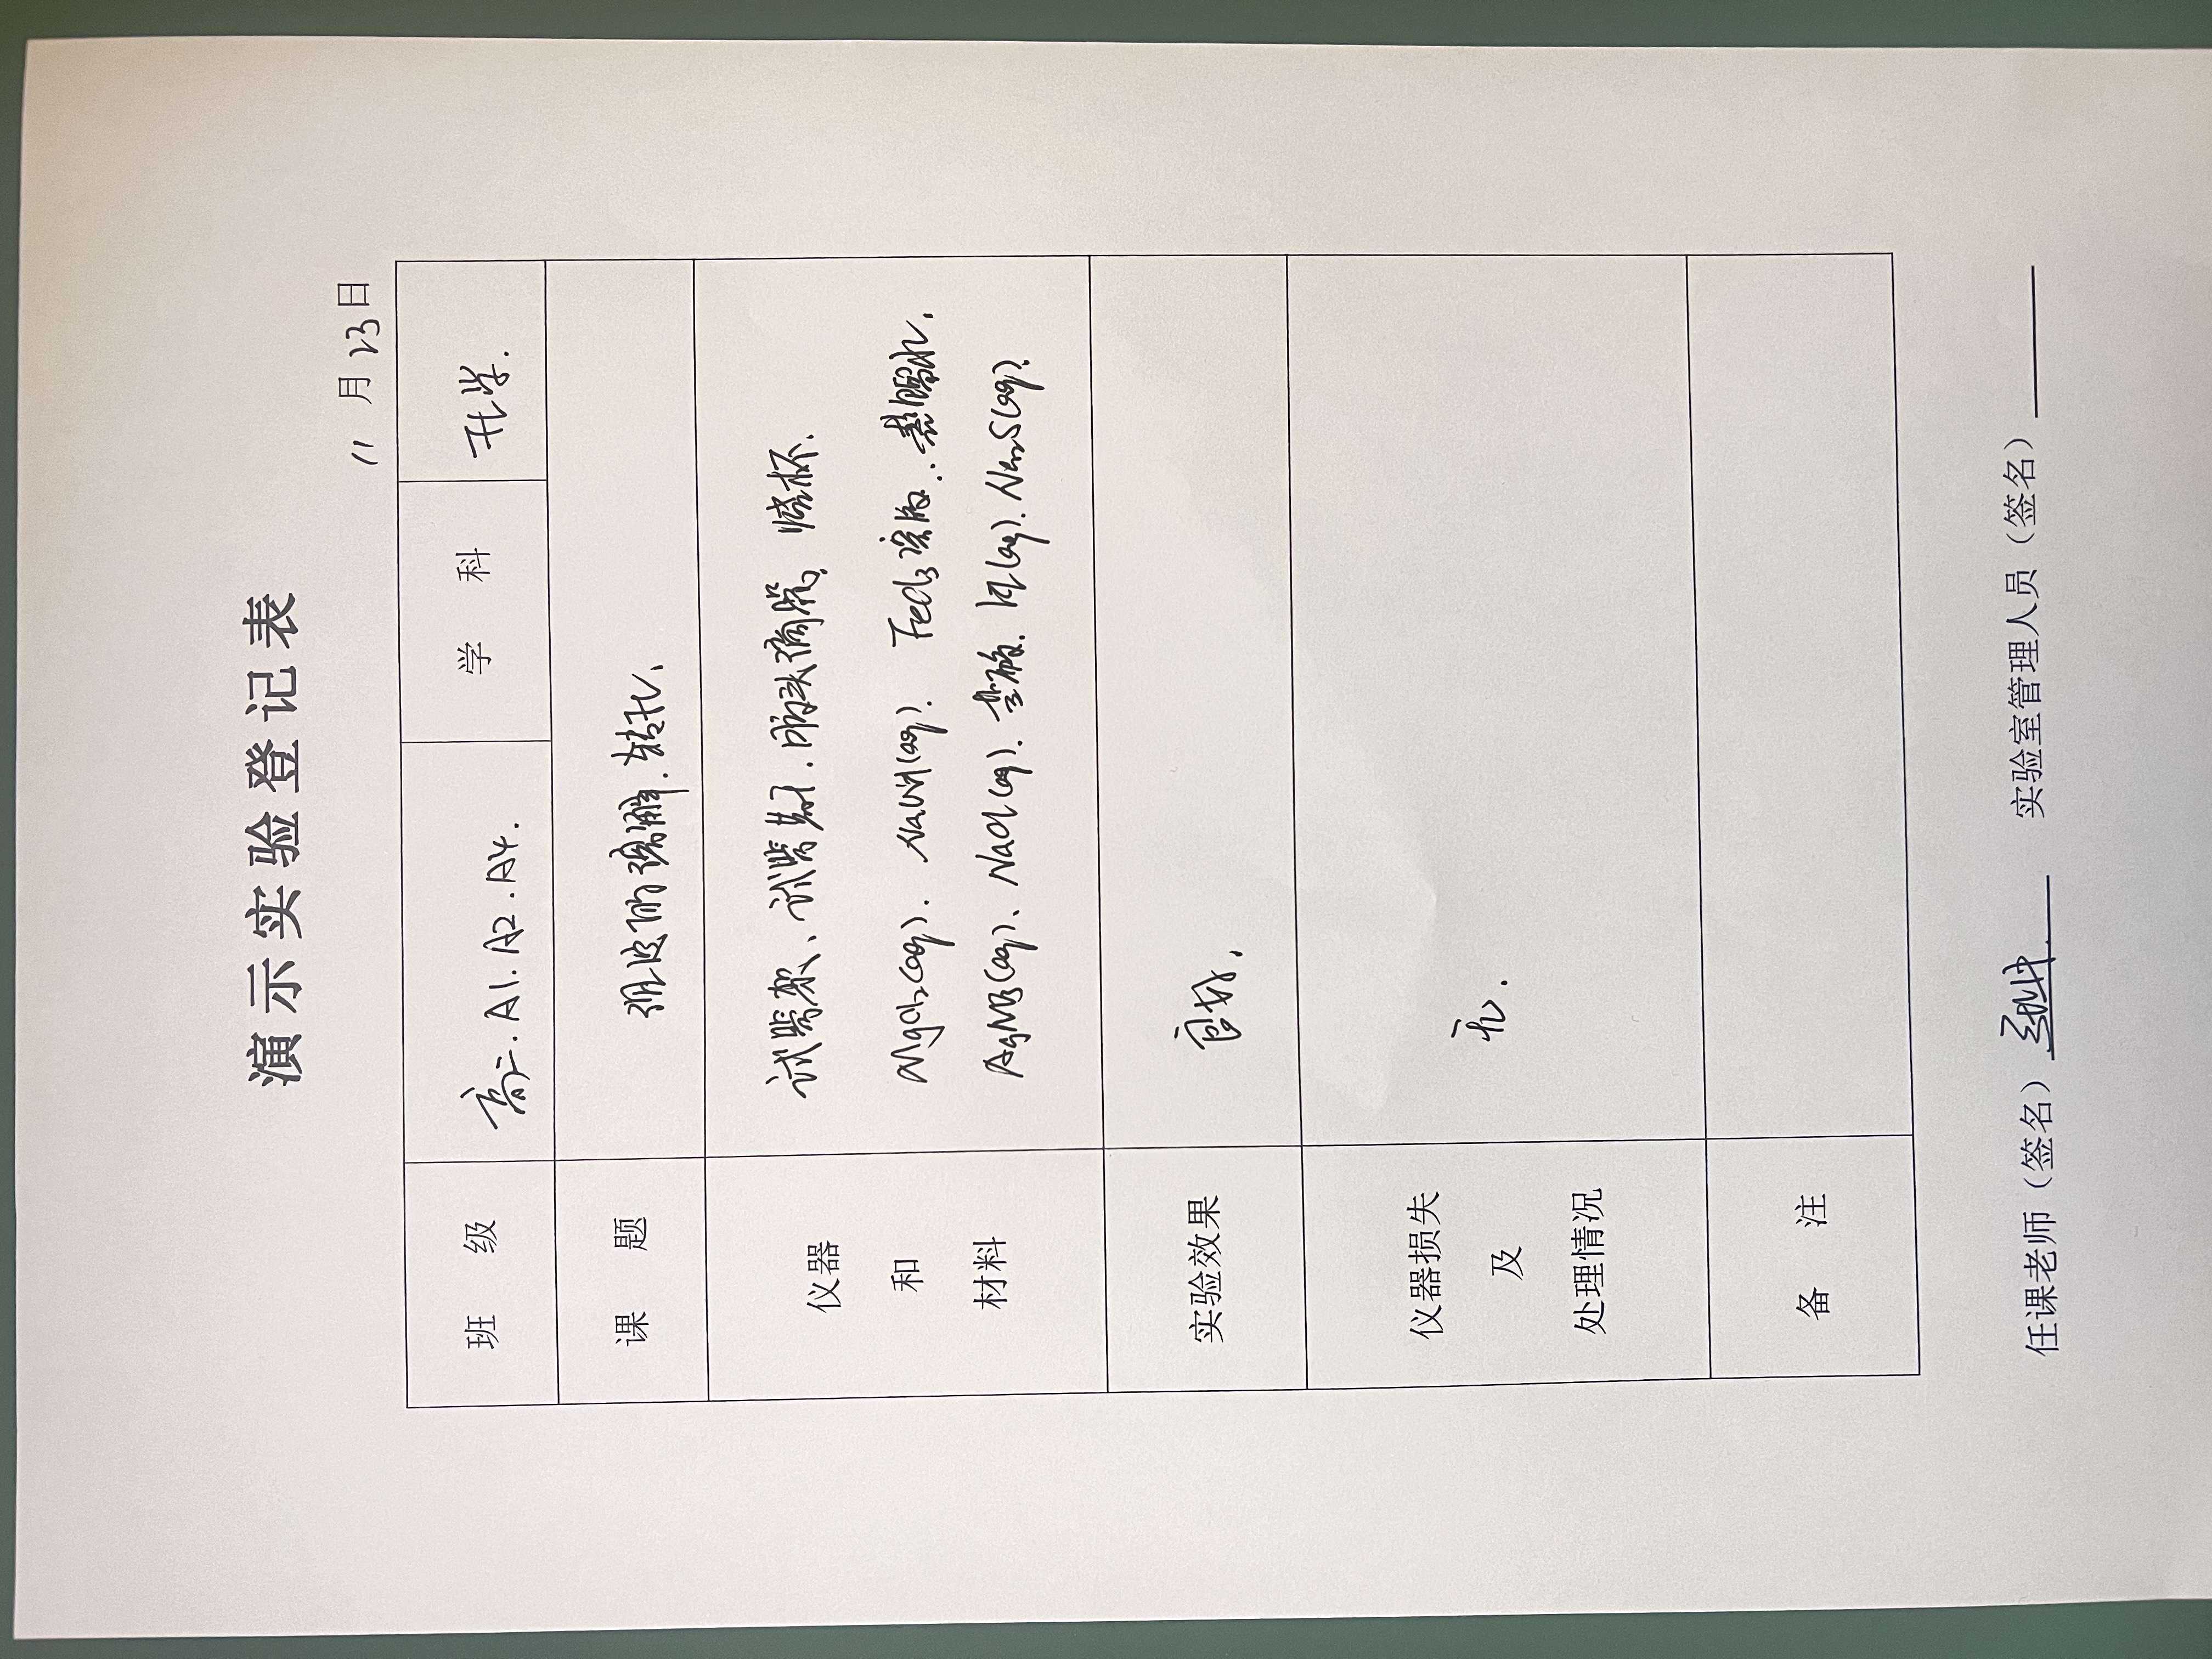 演示实验登记表
11 月 23 日
班 级 高二. A1. A2. A4. 学 科 化学.
课 题 沉淀的溶解.转化.
仪器 和 材料
试管架、试管、试管夹.胶头滴管, 烧杯.
MgCl2(aq). NaOH(aq). FeCl3溶液. 蒸馏水.
AgNO3(aq)、NaCl(aq). 盐酸. KI(aq). Na2S(aq).
实验效果 良好.
仪器损失 及 处理情况 无.
备 注
任课老师（签名） 实验室管理人员（签名）